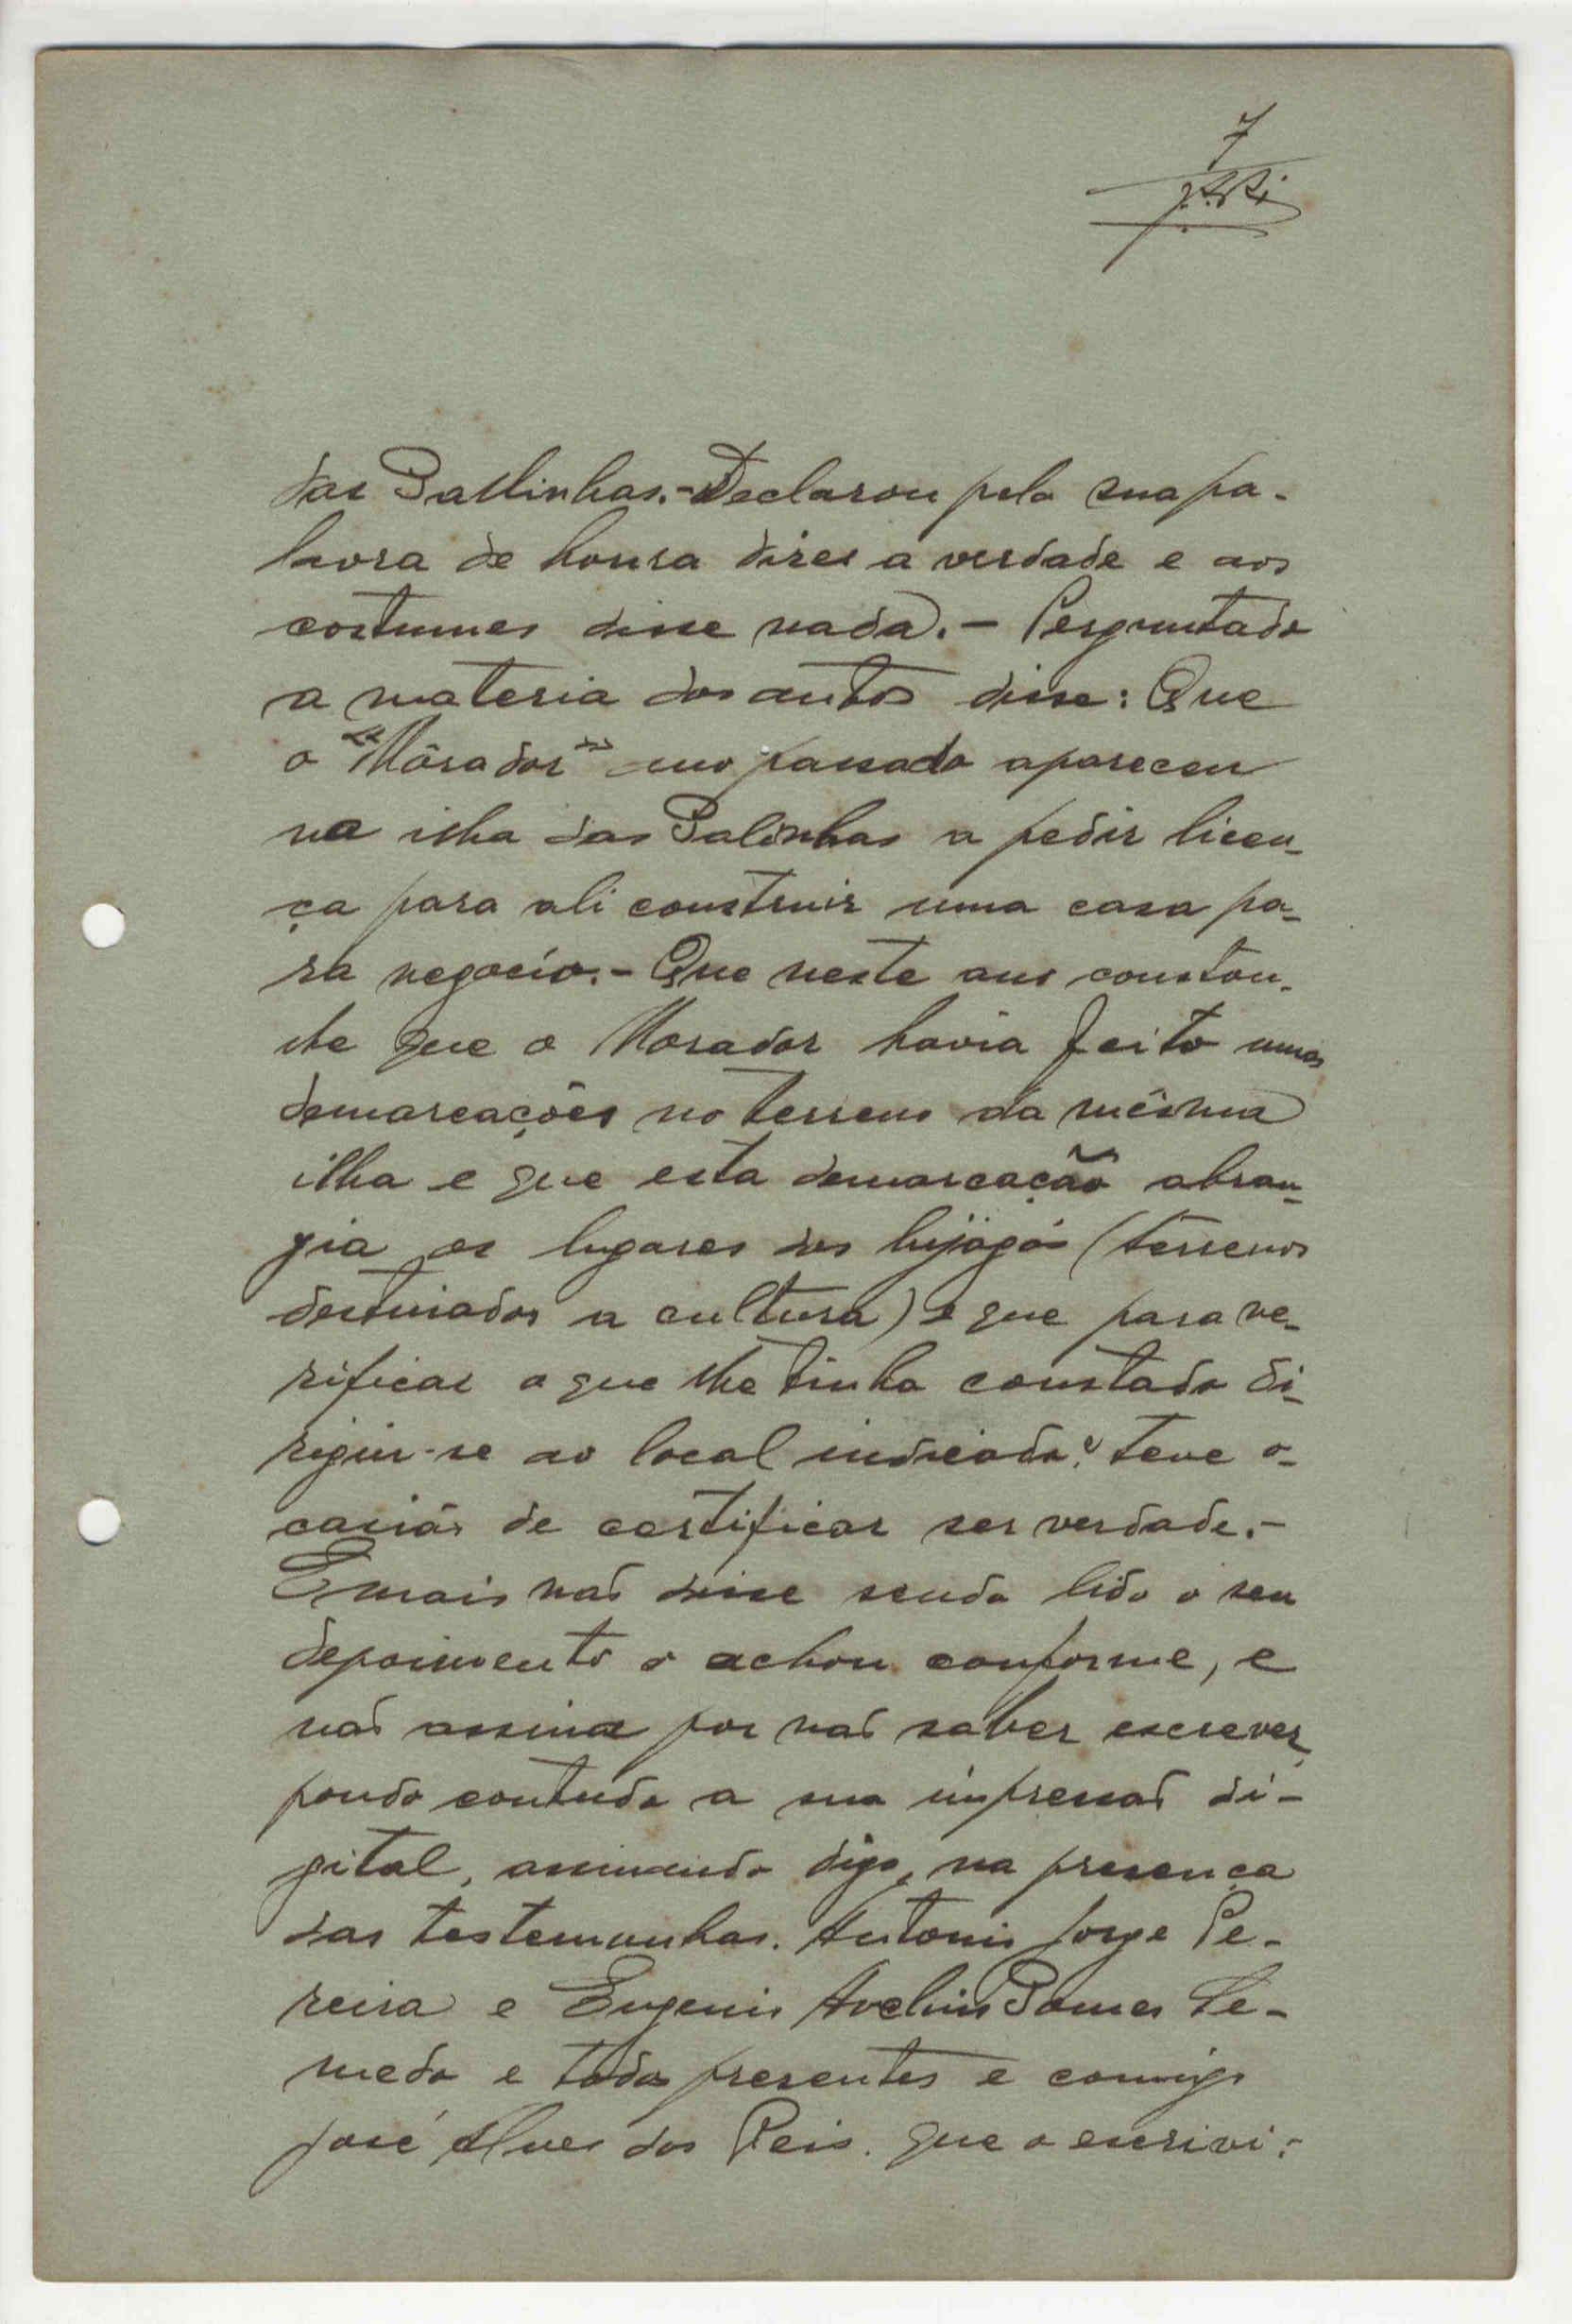 7
das Gallinhas.- Declarou pela sua pa-
lavra de honra dizer a verdade e aos
costumes disse nada.- Perguntado
a materia dos autos disse: Que
o "Môrador" ano passado apareceu
na ilha das Galinhas a pedir licen-
ça para ali construir uma casa pa-
ra negocio.- Que neste ano constou-
lhe que o Morador havia feito umas
demarcações no terreno da mêsma
ilha e que esta demarcação abran-
gia os lugares dos bijagós (terrenos
destinados a cultura) e que para ve-
rificar o que lhe tinha constado di-
rigiu-se ao local indicado e teve o-
casião de certificar ser verdade.-
E mais nao disse sendo lido o seu
depoimento o achou conforme, e
nao assina por nao saber escrever,
pondo contudo a sua impressao di-
gital, assinando digo, na presença
das testemunhas. Antonio Jorge Pe-
reira e Eugenio Avelino Gomes Se-
medo e todos presentes e comigo
José Alves dos Reis. que o escrivi:-